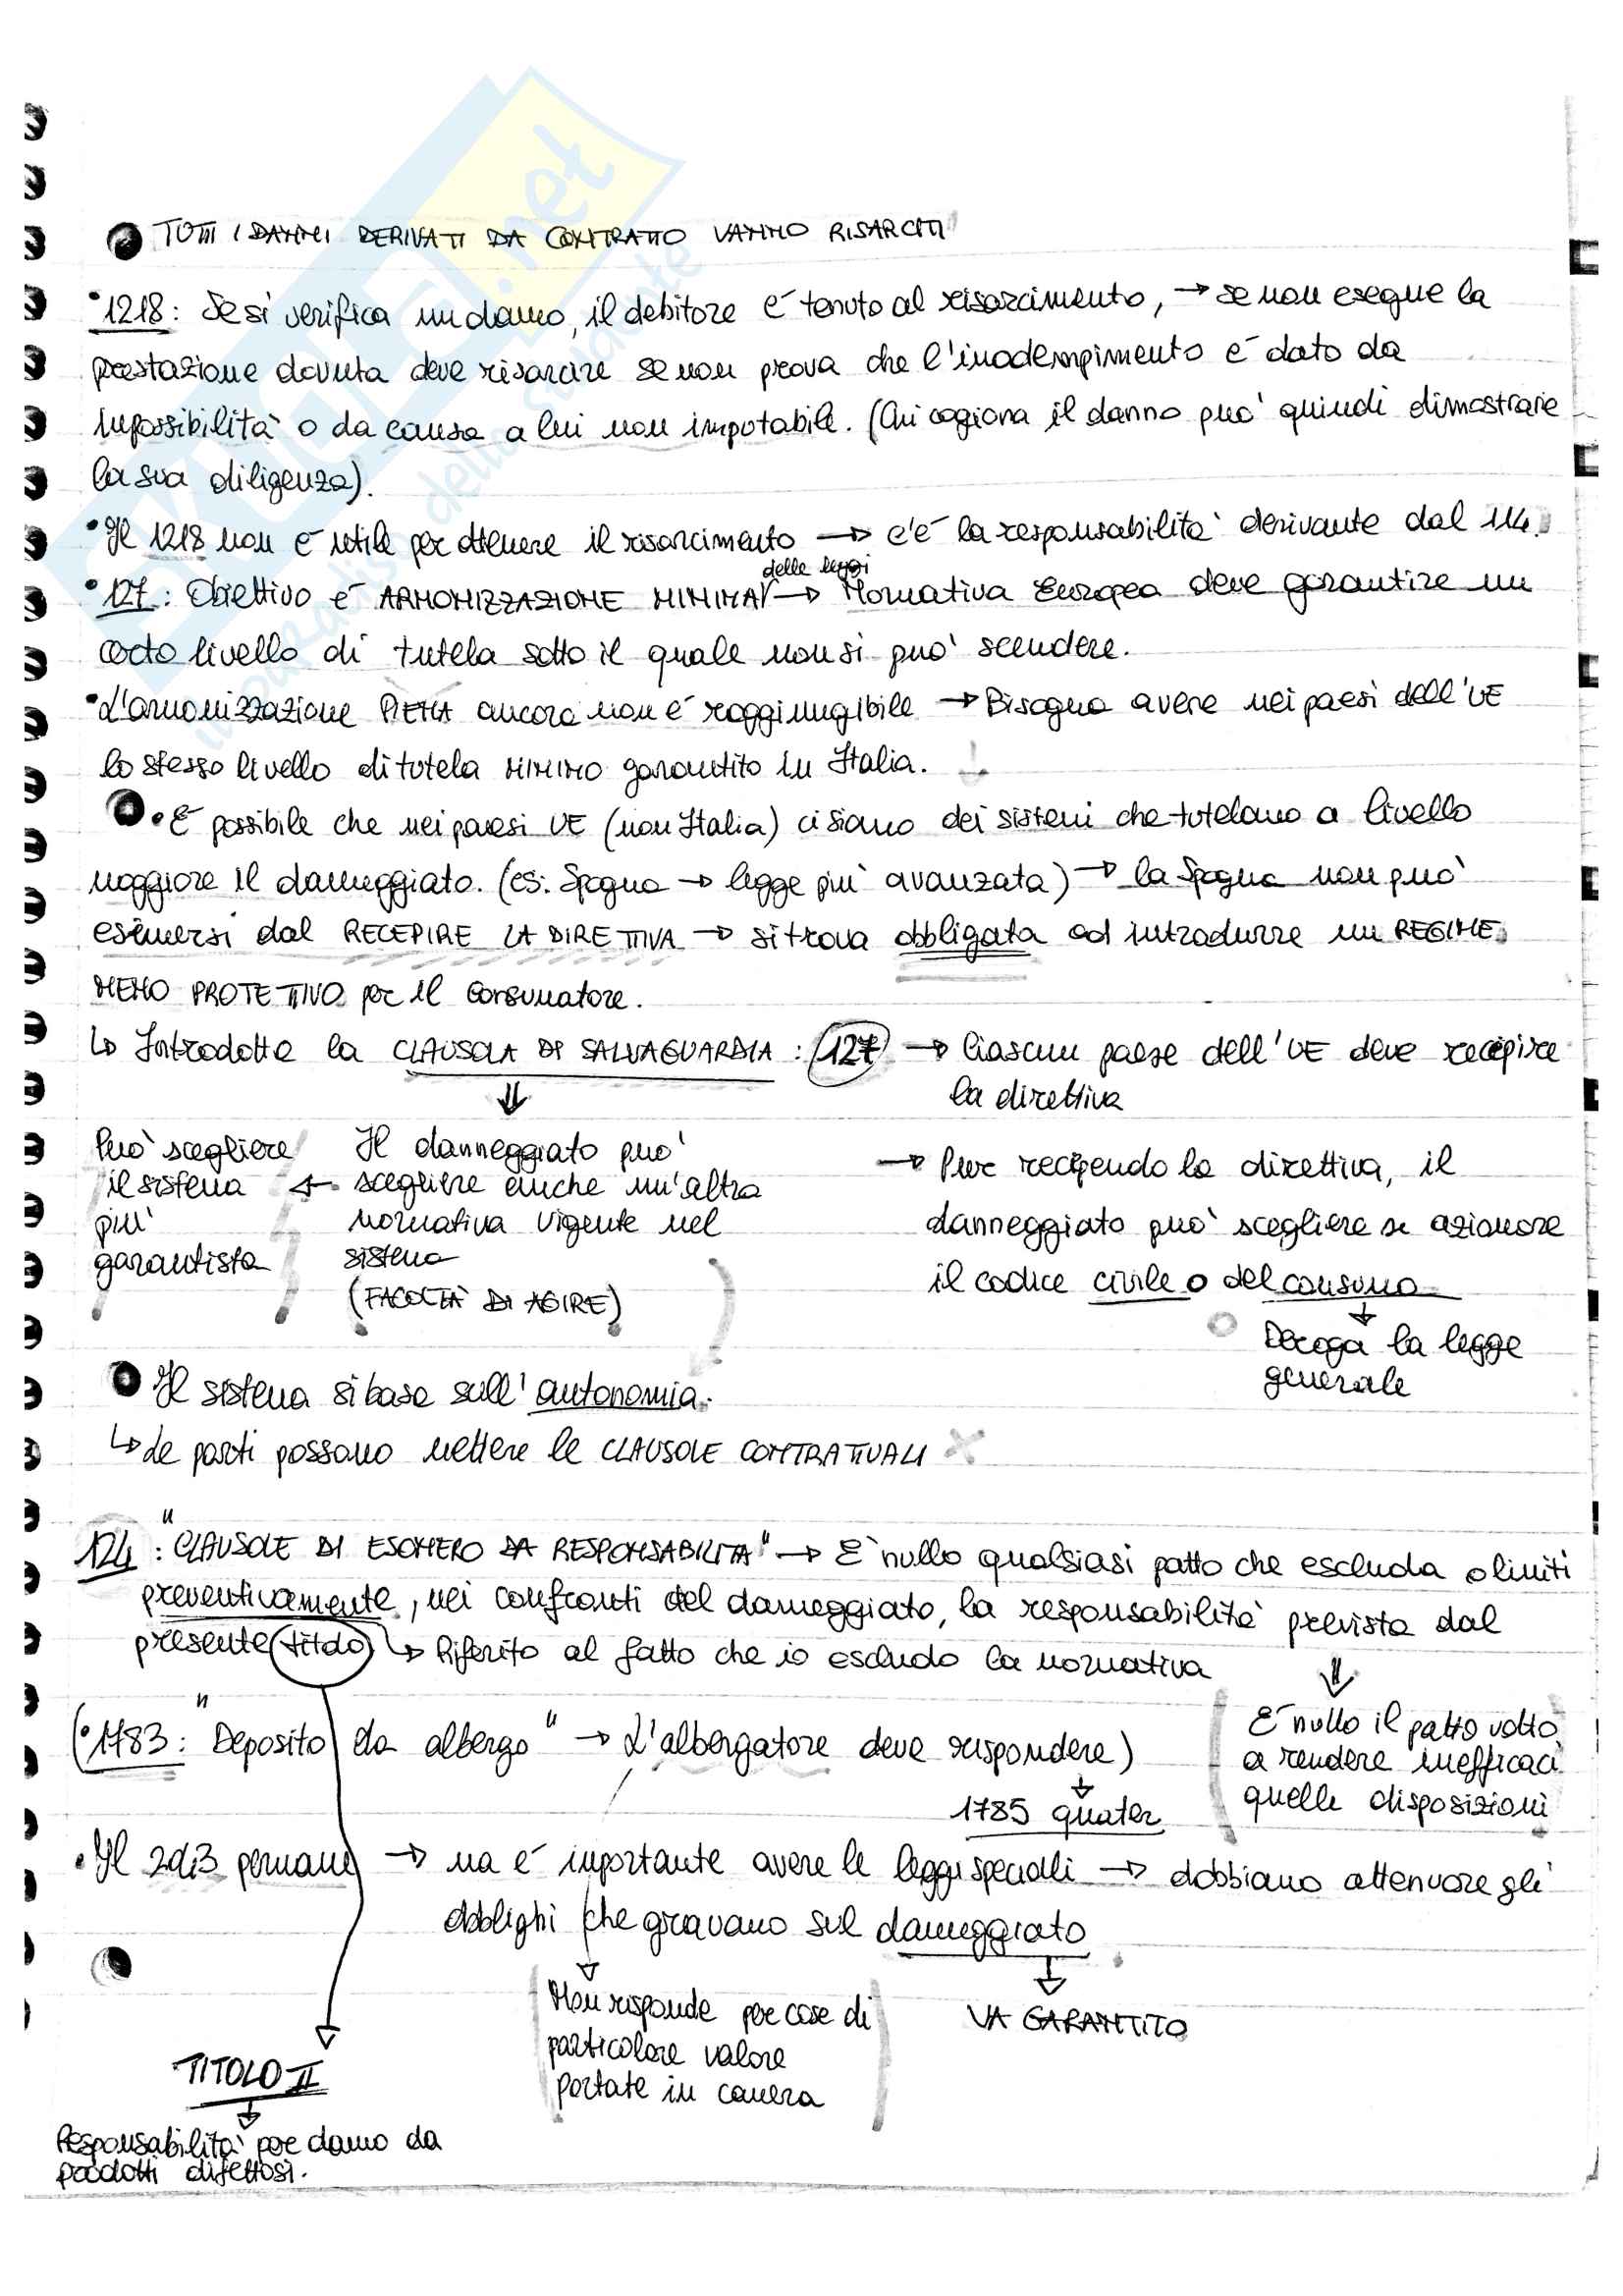 TUTTI I DANNI DERIVATI DA CONTRATTO VANNO RISARCITI
• 1218: Se si verifica un danno, il debitore è tenuto al risarcimento, → se non esegue la
prestazione dovuta deve risarcire se non prova che l'inadempimento è dato da
impossibilità o da causa a lui non imputabile. (Chi cagiona il danno può quindi dimostrare
la sua diligenza).
• Il 1218 non è utile per ottenere il risarcimento → c'è la responsabilità derivante dal 114.
delle leggi
• 127: Obiettivo è ARMONIZZAZIONE MINIMA → Normativa Europea deve garantire un
certo livello di tutela sotto il quale non si può scendere.
• L'armonizzazione PIENA ancora non è raggiungibile → Bisogna avere nei paesi dell'UE
lo stesso livello di tutela MINIMO garantito in Italia.
• È possibile che nei paesi UE (non Italia) ci siano dei sistemi che tutelano a livello
maggiore il danneggiato. (es: Spagna → legge più avanzata) → la Spagna non può
esimersi dal RECEPIRE LA DIRETTIVA → si trova obbligata ad introdurre un REGIME
MENO PROTETTIVO per il consumatore.
↳ Introdotta la CLAUSOLA DI SALVAGUARDIA: 127 → Ciascun paese dell'UE deve recepire
la direttiva
Può scegliere
il sistema
più
garantista
← Il danneggiato può
scegliere anche un'altra
normativa vigente nel
sistema
(FACOLTÀ DI AGIRE)
→ Pur recependo la direttiva, il
danneggiato può scegliere se azionare
il codice civile o del consumo
Deroga la legge
generale
Il sistema si basa sull'autonomia.
↳ Le parti possono mettere le CLAUSOLE CONTRATTUALI
124: "CLAUSOLE DI ESONERO DA RESPONSABILITÀ" → È nullo qualsiasi patto che escluda o limiti
preventivamente, nei confronti del danneggiato, la responsabilità prevista dal
presente titolo ↳ Riferito al fatto che io escludo la normativa
È nullo il patto volto
a rendere inefficaci
quelle disposizioni
(• 1783: "Deposito da albergo" → L'albergatore deve rispondere)
1785 quater
• Il 2013 permane → ma è importante avere le leggi speciali → dobbiamo attenuare gli
obblighi che gravano sul danneggiato
Non risponde per cose di
particolare valore
portate in camera
VA GARANTITO
TITOLO II
Responsabilità per danno da
prodotti difettosi.
SKUOLA.net
il paradiso dello studente